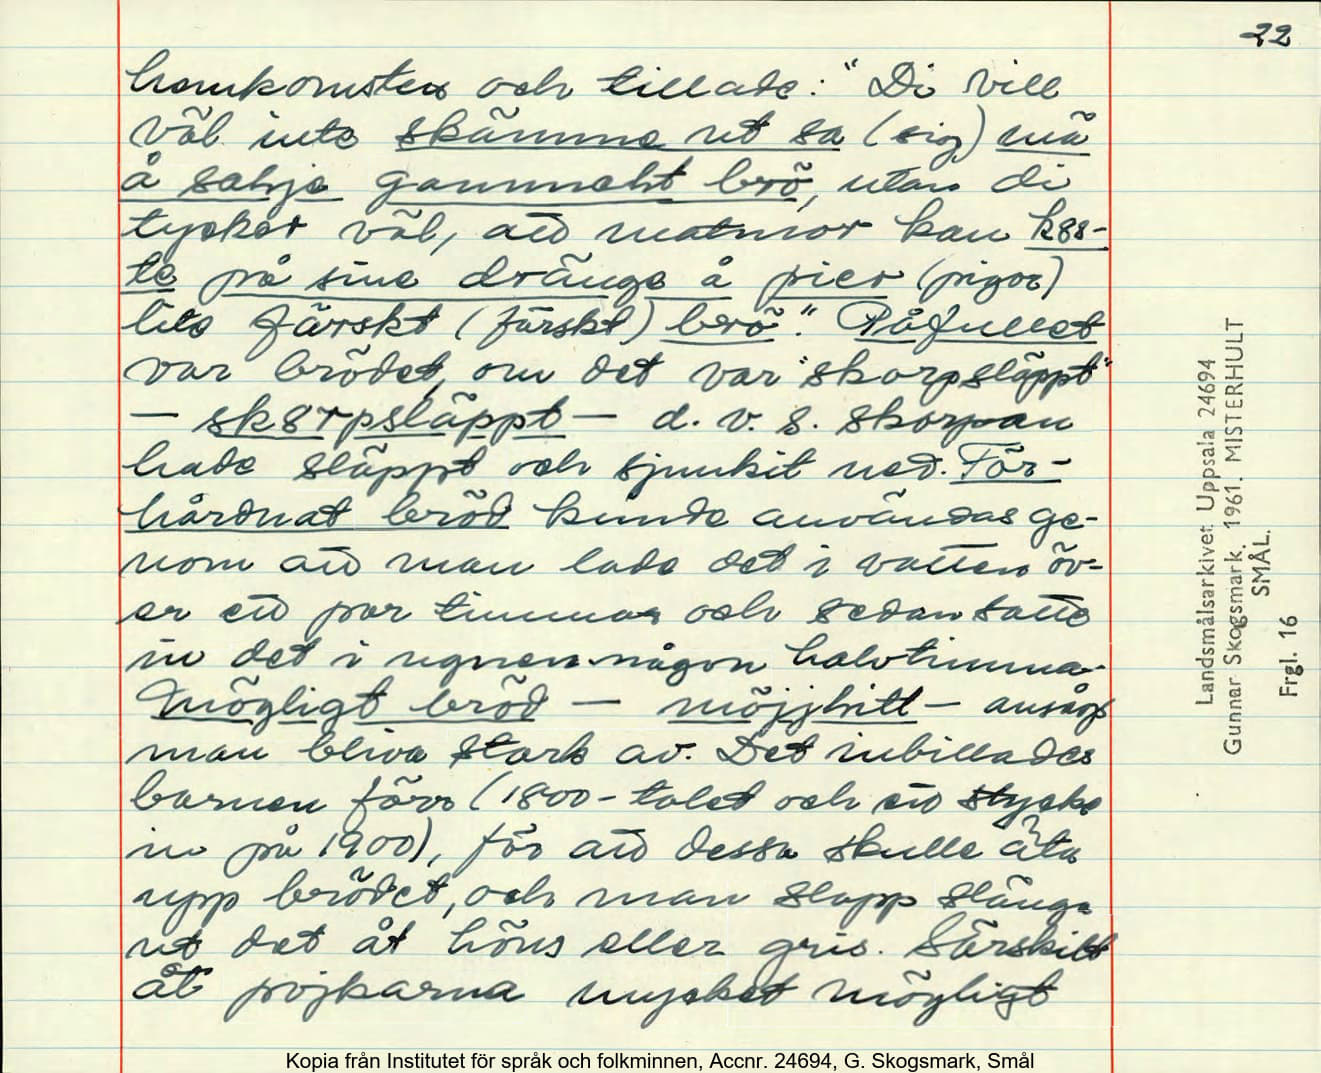 22
hemkomsten och tillade: "Di vill
väl inte skämme ut sa (sig) mä
å sälje gammeht brö, utan di
tycker väl, att matmor kan k8s-
te på sine dränge å pier (pigor)
lite färskt (färskt) brö". Råfullet
var brödet, om det var "skorpsläppt"
— sk8rpsläppt — d. v. s. skorpan
hade släppt och sjunkit ned. För-
hårdnat bröd kunde användas ge-
nom att man lade det i vatten öv-
er ett par timmar och sedan satte
in det i ugnen någon halvtimma.
Mögligt bröd — möjjhitt — ansåg
man bliva stark av. Det inbillades
barnen förr (1800-talet och ett stycke
in på 1900), för att dessa skulle äta
upp brödet, och man slapp slänga
ut det åt höns eller gris. Särskilt
åt pojkarna mycket mögligt
Landsmålsarkivet Uppsala 24694
Gunnar Skogsmark. 1961. MISTERHULT
SMÅL.
Frgl. 16
Kopia från Institutet för språk och folkminnen, Accnr. 24694, G. Skogsmark, Smål